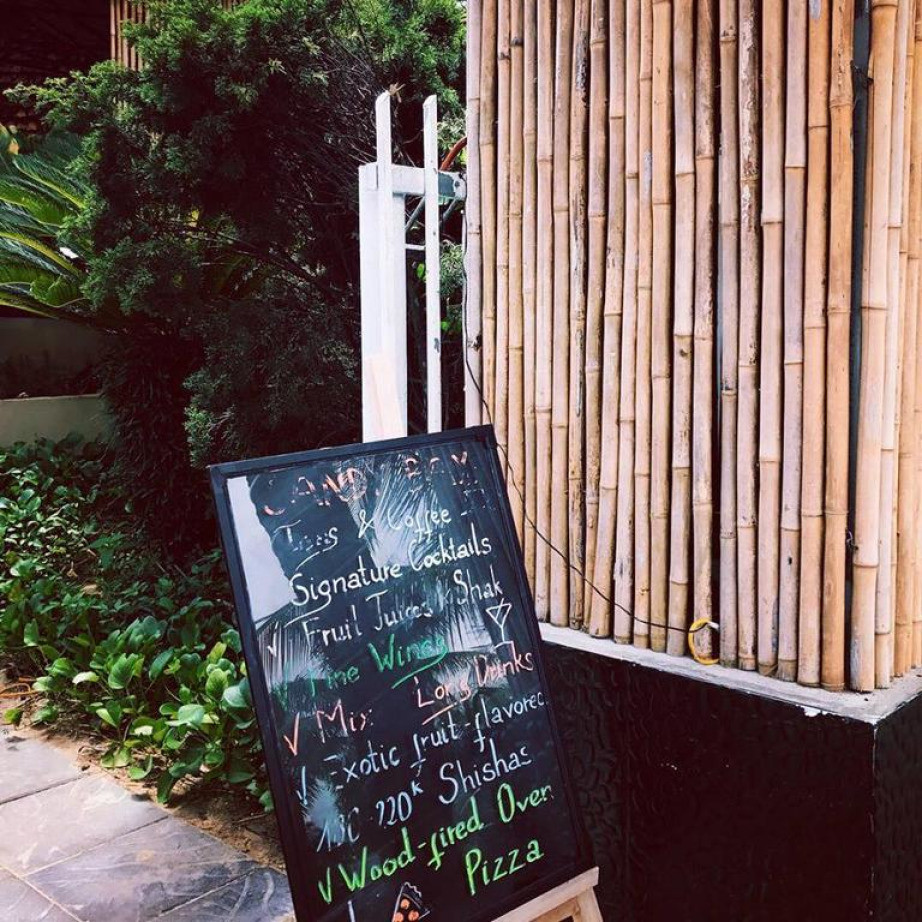 Teas & Coffee
Signature Cocktails
✓ Fruit Juices & Shak
✓ Fine Wines
✓ Mix Long Drinks
✓ Exotic fruit-flavored
Shishas
✓ Wood-fired Oven
Pizza